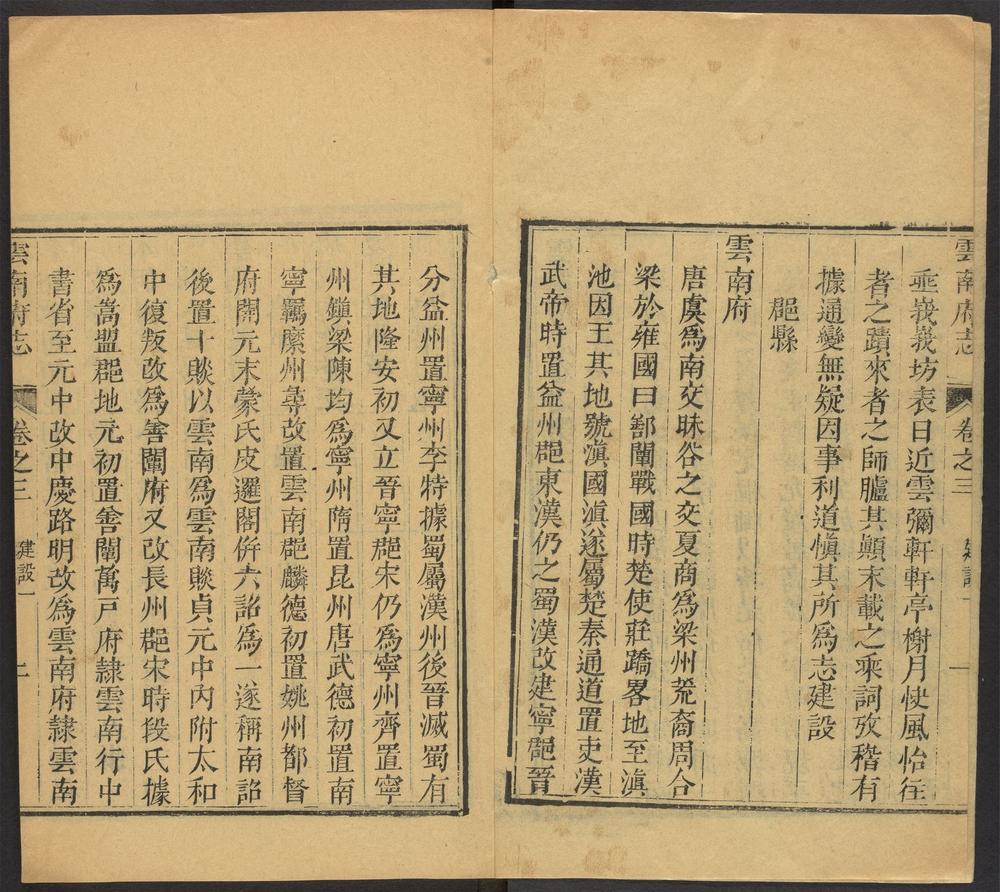 雲南府志 卷之三 建設一 一
垂峩峩坊表日近雲彌軒軒亭榭月快風怡往
者之蹟來者之師臚其顛末載之乘詞攷稽有
據通變無疑因事利道愼其所爲志建設
郡縣
雲南府
唐虞爲南交昧谷之交夏商爲梁州荒裔周合
梁於雍國曰鄯闡戰國時楚使莊蹻畧地至滇
池因王其地號滇國滇遂屬楚秦通道置吏漢
武帝時置益州郡東漢仍之蜀漢改建寧郡晉
分益州置寧州李特據蜀屬漢州後晉滅蜀有
其地隆安初又立晉寧郡宋仍爲寧州齊置寧
州鎮梁陳均爲寧州隋置昆州唐武德初置南
寧羈縻州尋改置雲南郡麟德初置姚州都督
府開元末蒙氏皮邏閣併六詔爲一遂稱南詔
後置十賧以雲南爲雲南賧貞元中內附太和
中復叛改爲善闡府又改長州郡宋時段氏據
爲嵩盟郡地元初置善闡萬戸府隸雲南行中
書省至元中改中慶路明改爲雲南府隸雲南
雲南府志 卷之三 建設一 二